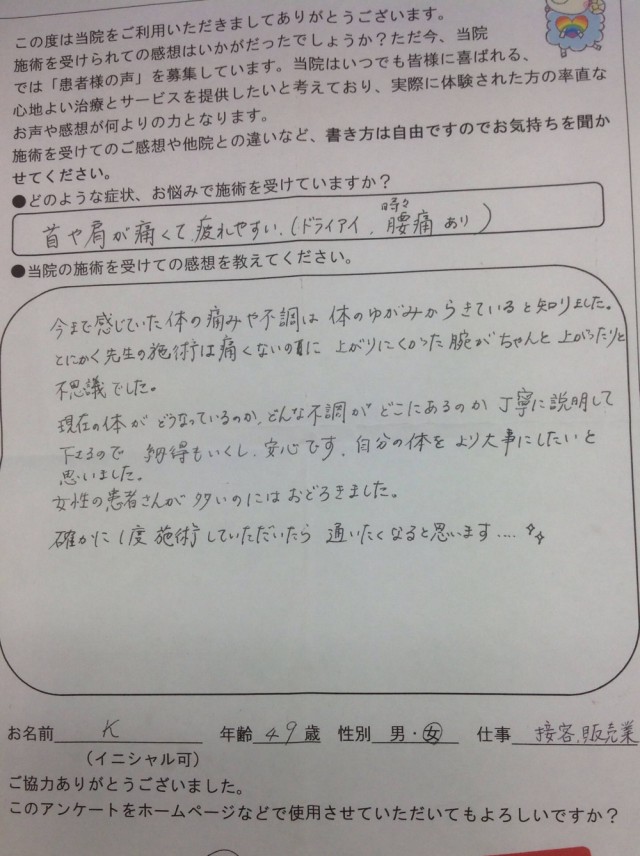 この度は当院をご利用いただきましてありがとうございます。
施術を受けられての感想はいかがだったでしょうか？ただ今、当院
では「患者様の声」を募集しています。当院はいつでも皆様に喜ばれる、
心地よい治療とサービスを提供したいと考えており、実際に体験された方の率直な
お声や感想が何よりの力となります。
施術を受けてのご感想や他院との違いなど、書き方は自由ですのでお気持ちを聞か
せてください。
●どのような症状、お悩みで施術を受けていますか？
首や肩が痛くて、疲れやすい。(ドライアイ、時々腰痛あり)
●当院の施術を受けての感想を教えてください。
今まで感じていた体の痛みや不調は 体のゆがみからきていると知りました。
とにかく先生の施術は痛くないのに 上がりにくかった腕がちゃんと上がったりと
不思議でした。
現在の体が どうなっているのか、どんな不調が どこにあるのか 丁寧に説明して
下さるので 納得もいくし、安心です。自分の体を より大事にしたいと
思いました。
女性の患者さんが 多いのには おどろきました。
確かに1度 施術していただいたら 通いたくなると思います....
お名前 K 年齢 49 歳 性別 男・女 仕事 接客、販売業
（イニシャル可）
ご協力ありがとうございました。
このアンケートをホームページなどで使用させていただいてもよろしいですか？